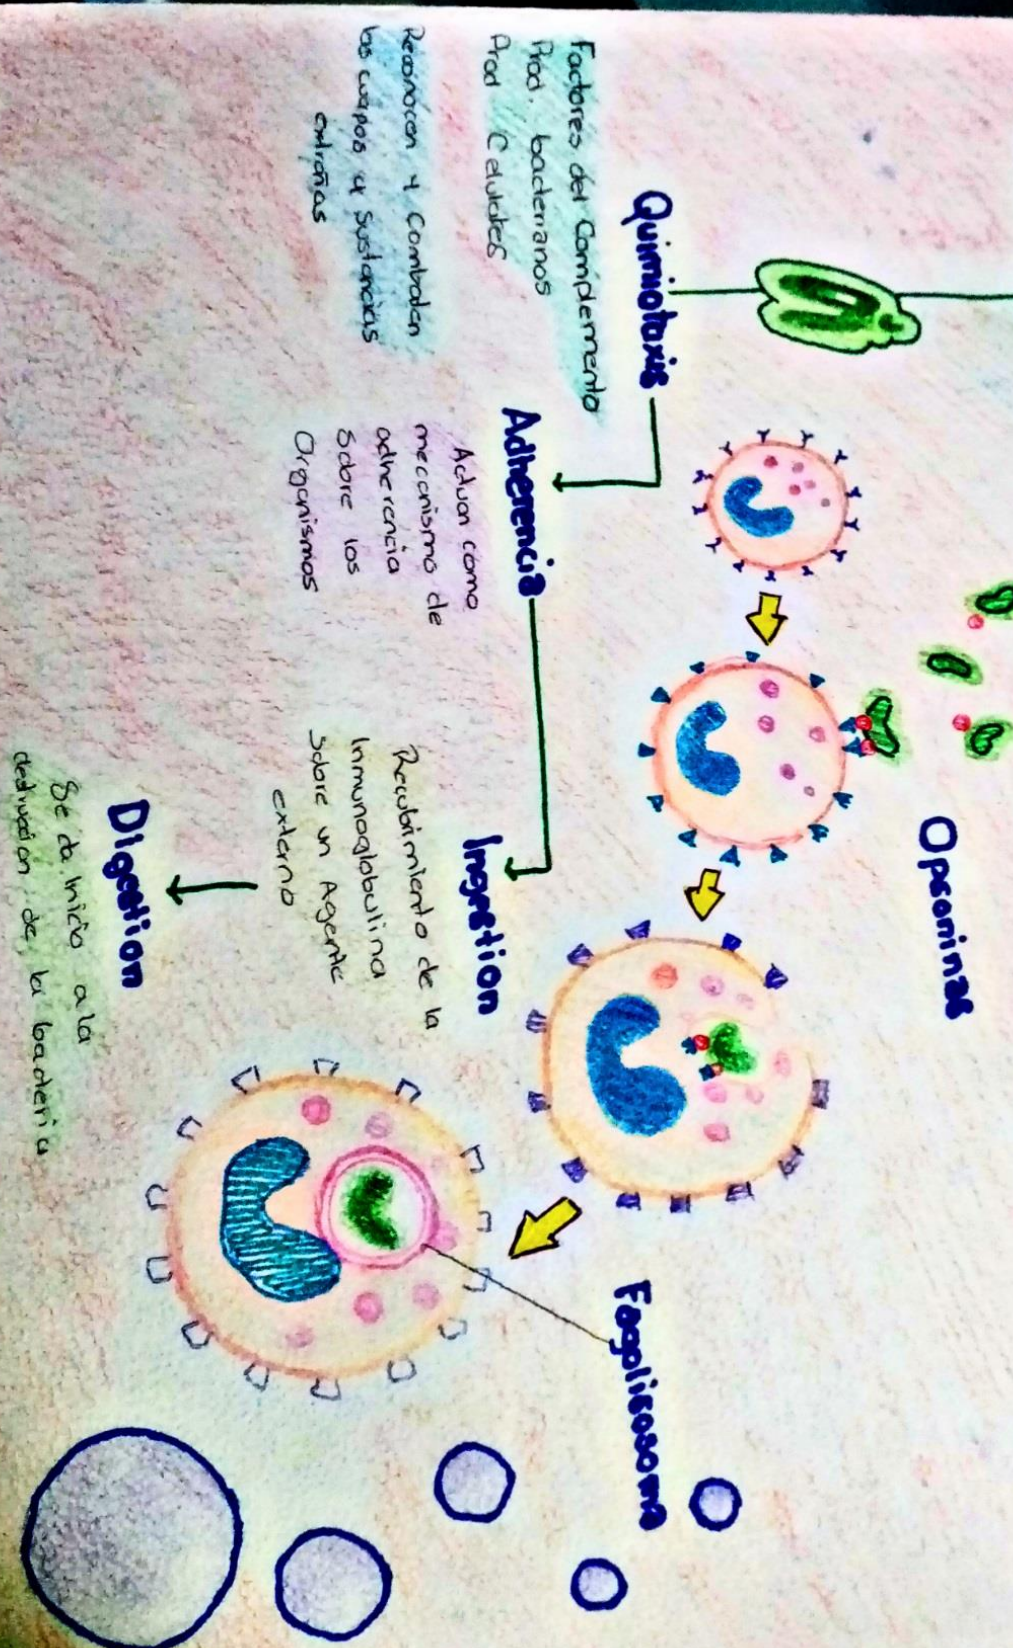 Opsoninas
Quimiotaxis
Factores del Complemento
Prod. bacterianos
Prod Celulales
Reconocen y Combaten
los cuerpos y Sustancias
extrañas
Adherencia
Actuan como
mecanismo de
adherencia
Sobre los
Organismos
Ingestion
Recubrimiento de la
Inmunoglobulina
Sobre un Agente
externo
Digestion
Se da inicio a la
destruccion de la bacteria
Fagolisosoma